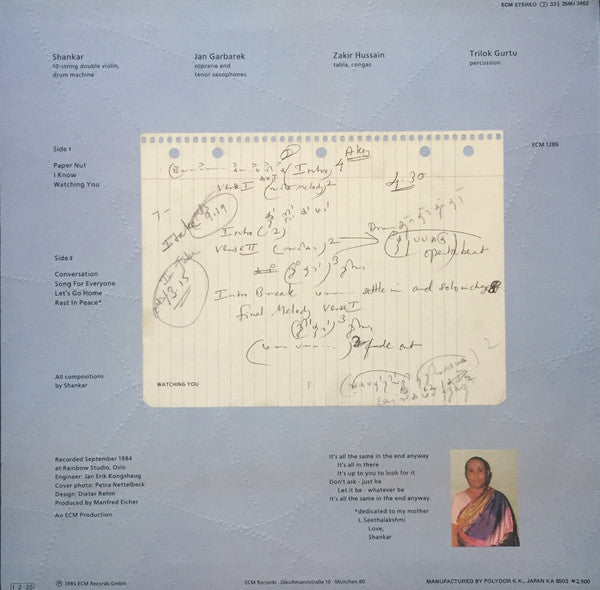 ECM STEREO 33⅓ 25MJ 3462
Shankar
10-string double violin,
drum machine
Jan Garbarek
soprano and
tenor saxophones
Zakir Hussain
tabla, congas
Trilok Gurtu
percussion
Side 1
ECM 1286
Paper Nut
I Know
Watching You
Side 2
Conversation
Song For Everyone
Let's Go Home
Rest In Peace*
All compositions
by Shankar
(Intro) 4
Verse I (melody) 2
4.30
I take 9.19
Intro (2)
Verse II 2
Drum
open beat
13.15
Intro Break settle in and solo
final Melody Verse I
2 fade out
WATCHING YOU
Recorded September 1984
at Rainbow Studio, Oslo
Engineer: Jan Erik Kongshaug
Cover photo: Petra Nettelbeck
Design: Dieter Rehm
Produced by Manfred Eicher
An ECM Production
It's all the same in the end anyway
It's all in there
It's up to you to look for it
Don't ask - just be
Let it be - whatever be
It's all the same in the end anyway.
*dedicated to my mother
L. Seethalakshmi
Love,
Shankar
I 2·25
Ⓟ 1985 ECM Records GmbH
ECM Records · Gleichmannstraße 10 · München 60
MANUFACTURED BY POLYDOR K.K., JAPAN KA 8503 ¥2,500